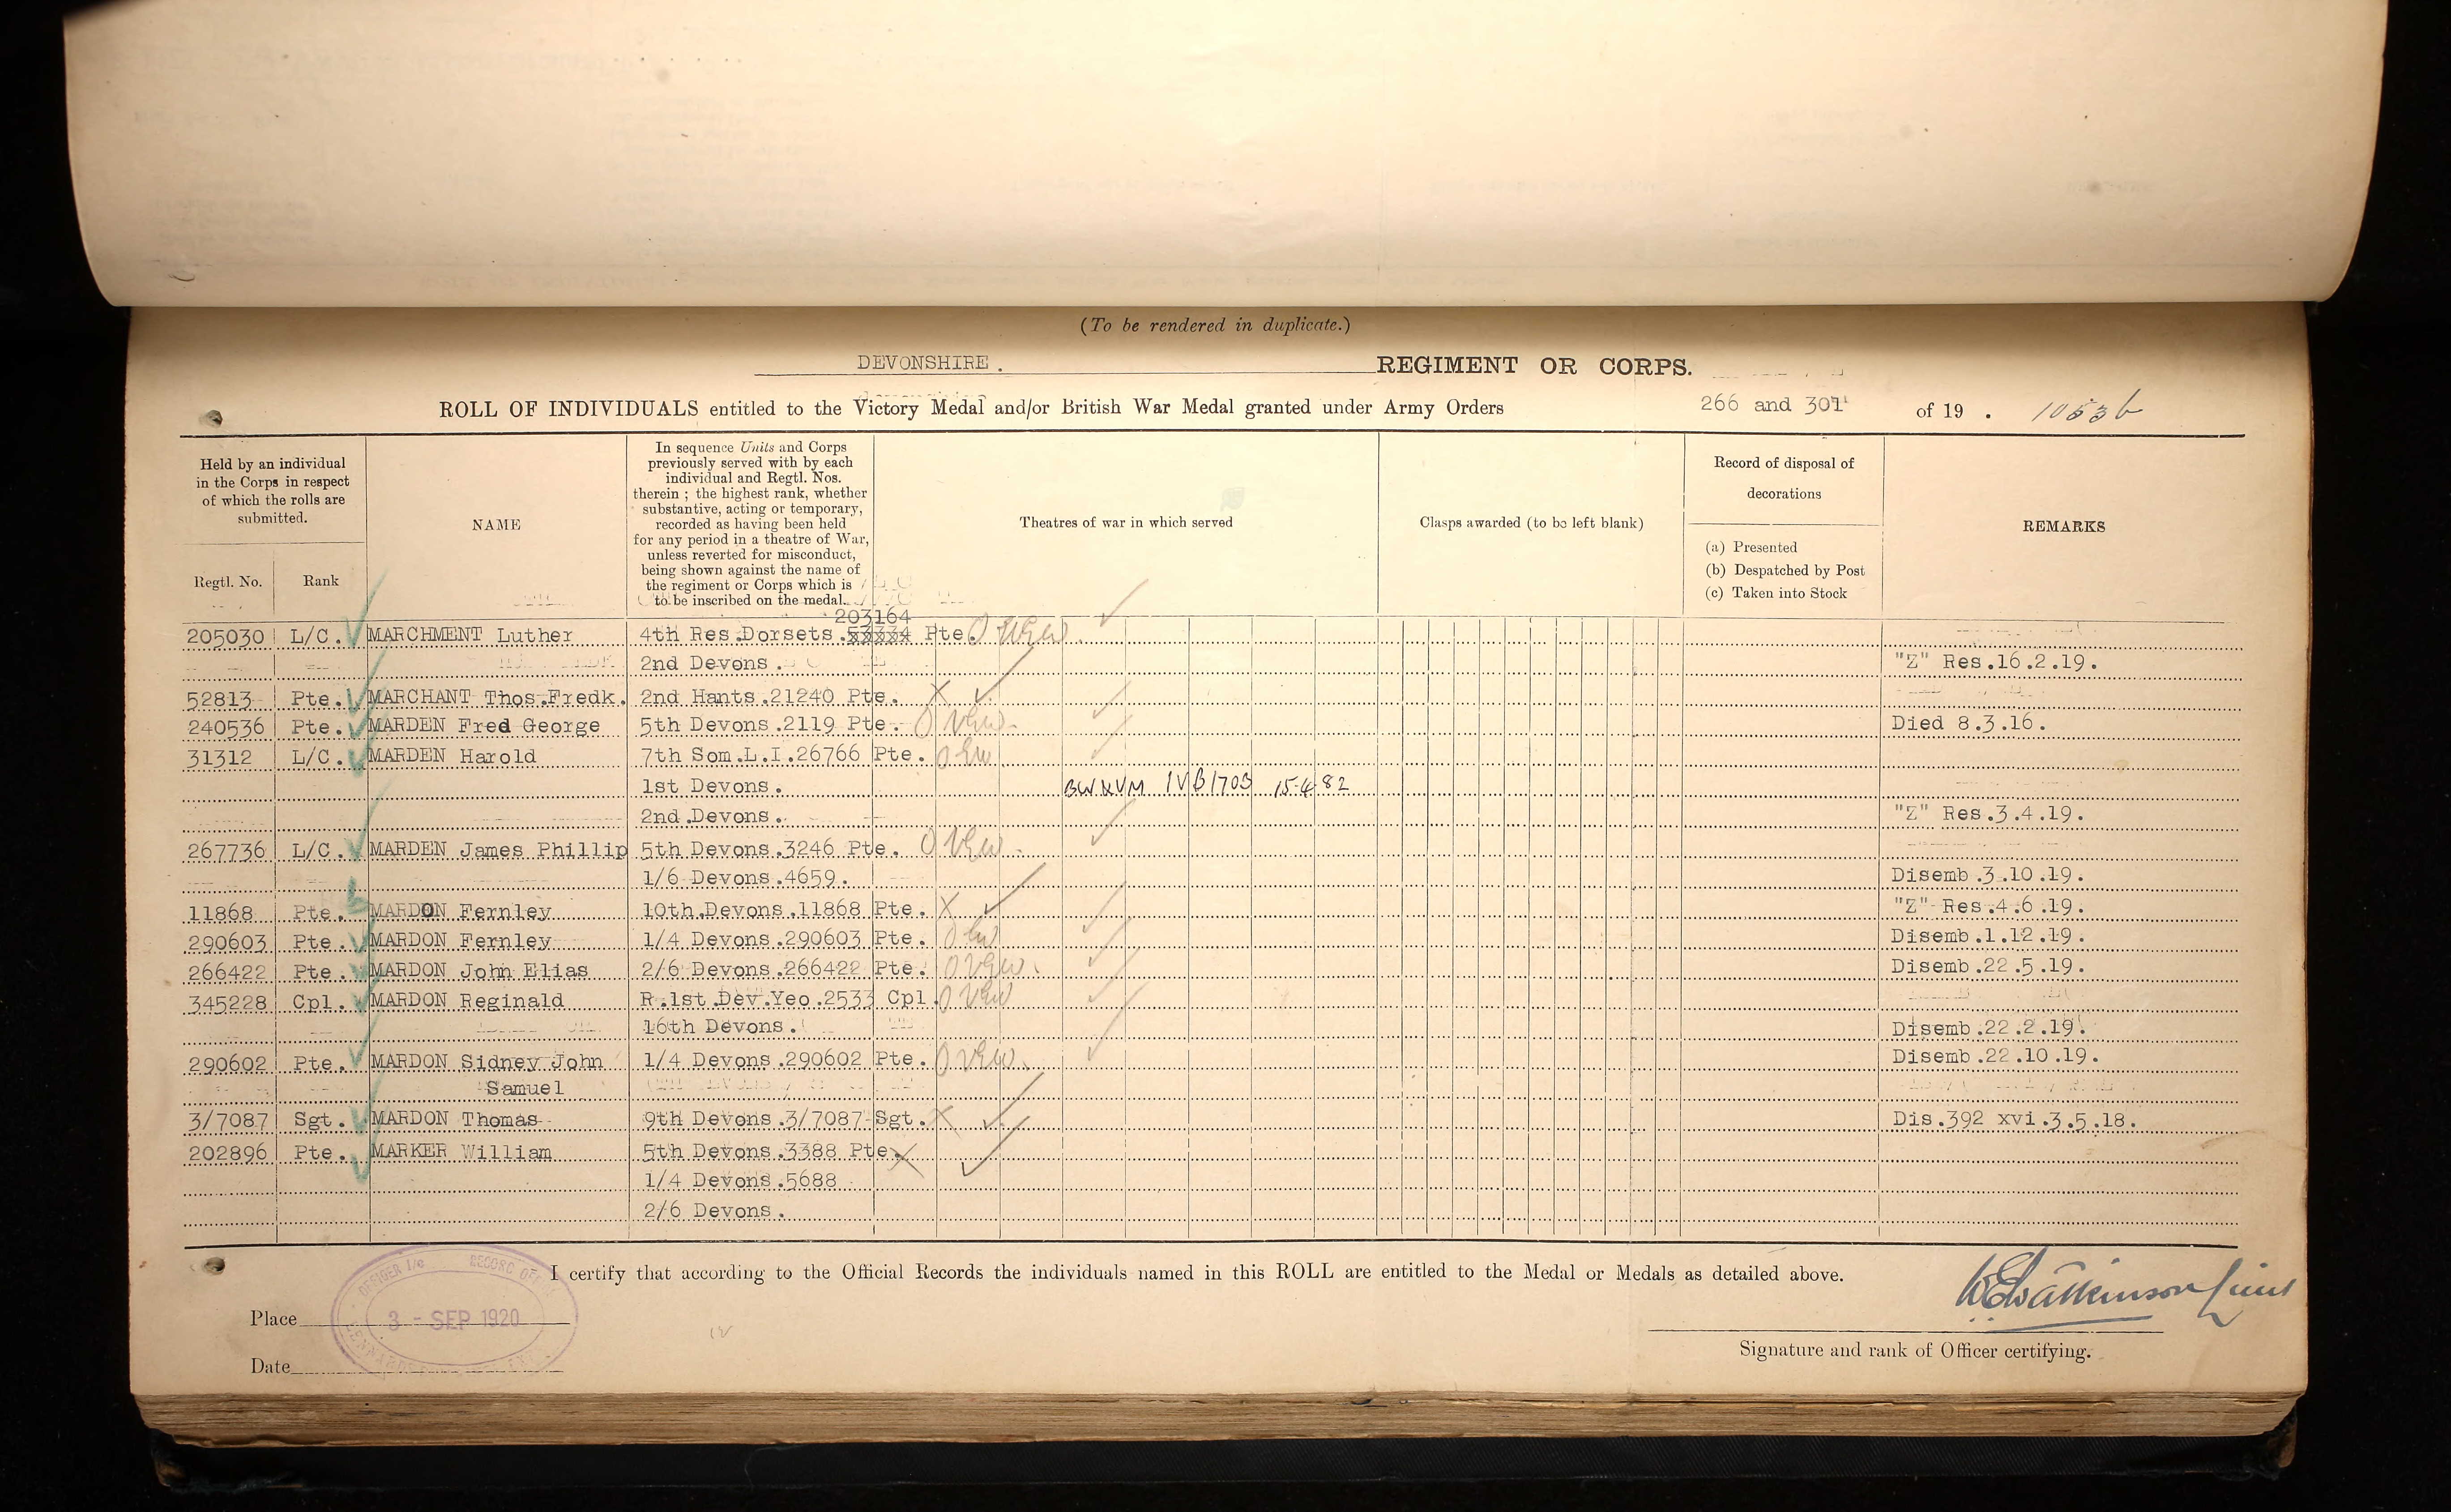 (To be rendered in duplicate.)
DEVONSHIRE. REGIMENT OR CORPS.
ROLL OF INDIVIDUALS entitled to the Victory Medal and/or British War Medal granted under Army Orders 266 and 301 of 19 .
Held by an individual in the Corps in respect of which the rolls are submitted.
Regtl. No. Rank
NAME
In sequence Units and Corps
previously served with by each
individual and Regtl. Nos.
therein ; the highest rank, whether
substantive, acting or temporary,
recorded as having been held
for any period in a theatre of War,
unless reverted for misconduct,
being shown against the name of
the regiment or Corps which is
to be inscribed on the medal.
Theatres of war in which served
Clasps awarded (to be left blank)
Record of disposal of
decorations
(a) Presented
(b) Despatched by Post
(c) Taken into Stock
REMARKS
203164
205030 L/C. MARCHMENT Luther 4th Res.Dorsets. Pte.
2nd Devons. "Z" Res.16.2.19.
52813 Pte. MARCHANT Thos.Fredk. 2nd Hants.21240 Pte. X
240536 Pte. MARDEN Fred George 5th Devons.2119 Pte. Died 8.3.16.
31312 L/C. MARDEN Harold 7th Som.L.I.26766 Pte.
1st Devons. BW&VM IVB/1703 15-4-82
2nd Devons. "Z" Res.3.4.19.
267736 L/C. MARDEN James Phillip 5th Devons.3246 Pte.
1/6 Devons.4659. Disemb.3.10.19.
11868 Pte. MARDON Fernley 10th.Devons.11868 Pte. X "Z" Res.4.6.19.
290603 Pte. MARDON Fernley 1/4 Devons.290603 Pte. Disemb.1.12.19.
266422 Pte. MARDON John Elias 2/6 Devons.266422 Pte. Disemb.22.5.19.
345228 Cpl. MARDON Reginald R.1st.Dev.Yeo.2533 Cpl.
16th Devons. Disemb.22.2.19.
290602 Pte. MARDON Sidney John 1/4 Devons.290602 Pte. Disemb.22.10.19.
Samuel
3/7087 Sgt. MARDON Thomas 9th Devons.3/7087 Sgt. X Dis.392 xvi.3.5.18.
202896 Pte. MARKER William 5th Devons.3388 Pte. X
1/4 Devons.5688
2/6 Devons.
I certify that according to the Official Records the individuals named in this ROLL are entitled to the Medal or Medals as detailed above.
OFFICER I/C RECORD
3 - SEP 1920
Place
Date
Signature and rank of Officer certifying.